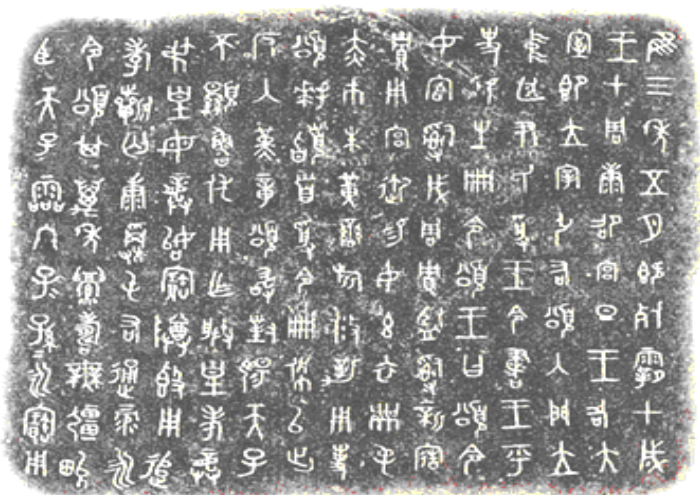 隹三年五月既死霸甲戌
王才周康卲宮旦王各大
室即立宰引右頌入門立
中廷尹氏受王令書王乎
史虢生冊令頌王曰頌令
女官𤔲成周貯監𤔲新造
貯用宮御易女玄衣黹屯
赤巿朱黃鑾旂攸勒用事
頌拜𩒨首受令冊佩以出
反入堇章頌敢對揚天子
不顯魯休用乍朕皇考龏
弔皇母龏姒寶尊𣪘用追
孝祈匄康𩇨屯右通彔永
令頌其萬年眉壽無疆畯
臣天子霝冬子孫永寶用